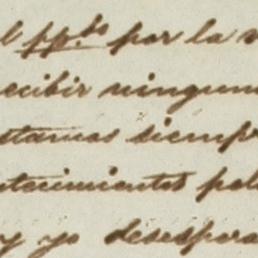 l pp.do por la
ecibir ningun
stamos siemp
ntecimientos pol
y yo desespera